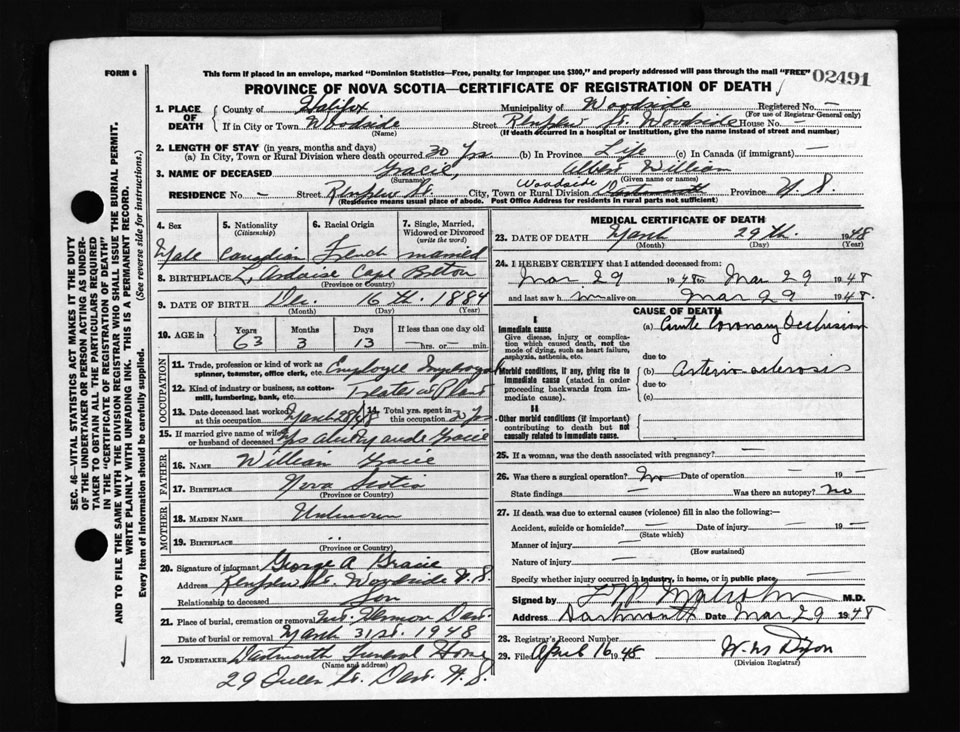 FORM 6
This form if placed in an envelope, marked "Dominion Statistics—Free, penalty for improper use $300," and properly addressed will pass through the mail "FREE"
02491
PROVINCE OF NOVA SCOTIA—CERTIFICATE OF REGISTRATION OF DEATH
1. PLACE OF DEATH
County of Halifax
Municipality of Woodside
Registered No. —
(For use of Registrar General only)
If in City or Town Woodside
(Name)
Street Renfrew St. Woodside House No. —
(If death occurred in a hospital or institution, give the name instead of street and number)
2. LENGTH OF STAY (in years, months and days)
(a) In City, Town or Rural Division where death occurred 30 Yrs. (b) In Province Life (c) In Canada (if immigrant) —
3. NAME OF DECEASED Gracie, Albert William
(Surname) (Given name or names)
RESIDENCE No. — Street Renfrew St. City, Town or Rural Division Woodside Dartmouth Province N.S.
(Residence means usual place of abode. Post Office Address for residents in rural parts not sufficient)
4. Sex
Male
5. Nationality
(Citizenship)
Canadian
6. Racial Origin
French
7. Single, Married, Widowed or Divorced
(write the word)
married
8. BIRTHPLACE L'Ardoise Cape Breton
(Province or Country)
9. DATE OF BIRTH Dec. 16th. 1884
(Month) (Day) (Year)
10. AGE in
Years Months Days If less than one day old
63 3 13 —hrs. or— min.
OCCUPATION
11. Trade, profession or kind of work as spinner, teamster, office clerk, etc. Employee
12. Kind of industry or business, as cotton-mill, lumbering, bank, etc. Plant
13. Date deceased last worked at this occupation March 28/48
14. Total yrs. spent in this occupation 30 Yrs
15. If married give name of wife or husband of deceased Gracie
FATHER
16. NAME William Gracie
17. BIRTHPLACE Nova Scotia
(Province or Country)
MOTHER
18. MAIDEN NAME Unknown
19. BIRTHPLACE "
(Province or Country)
20. Signature of informant George A Gracie
Address Renfrew St. Woodside N.S.
Relationship to deceased Son
21. Place of burial, cremation or removal Mt. Hermon Dart.
Date of burial or removal March 31st. 1948
22. UNDERTAKER Dartmouth Funeral Home
(Name and address)
29 Queen St. Dart. N.S.
MEDICAL CERTIFICATE OF DEATH
23. DATE OF DEATH March 29th. 1948
(Month) (Day) (Year)
24. I HEREBY CERTIFY that I attended deceased from:
Mar 29 1948 to Mar 29 1948
and last saw him alive on Mar 29 1948.
CAUSE OF DEATH
I
Immediate cause
Give disease, injury or complication which caused death, not the mode of dying, such as heart failure, asphyxia, asthenia, etc.
(a) Acute Coronary Occlusion
due to
Morbid conditions, if any, giving rise to immediate cause (stated in order proceeding backwards from immediate cause).
(b) Arterio-sclerosis
due to
(c)
II
Other morbid conditions (if important) contributing to death but not causally related to immediate cause.
25. If a woman, was the death associated with pregnancy? —
26. Was there a surgical operation? No Date of operation — 19 —
State findings — Was there an autopsy? no
27. If death was due to external causes (violence) fill in also the following:—
Accident, suicide or homicide? — Date of injury — 19 —
(State which)
Manner of injury —
(How sustained)
Nature of injury —
Specify whether injury occurred in industry, in home, or in public place.
Signed by Malcolm M.D.
Address Dartmouth Date Mar 29 1948
28. Registrar's Record Number
29. Filed April 16 1948
(Division Registrar)
SEC. 46—VITAL STATISTICS ACT MAKES IT THE DUTY
OF THE UNDERTAKER OR PERSON ACTING AS UNDERTAKER TO OBTAIN ALL THE PARTICULARS REQUIRED
IN THE "CERTIFICATE OF REGISTRATION OF DEATH"
AND TO FILE THE SAME WITH THE DIVISION REGISTRAR WHO SHALL ISSUE THE BURIAL PERMIT.
WRITE PLAINLY WITH UNFADING INK. THIS IS A PERMANENT RECORD.
Every item of information should be carefully supplied. (See reverse side for instructions.)